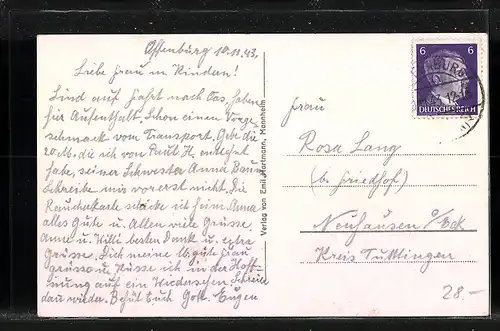 Offenburg 10.11.43.
Liebe Frau u. Kinder!
Sind auf Fahrt nach haben
hier Aufenthalt. Schon einen Vorge-
schmack vom Transport. Gib die
20 M. die ich von Paul H. entlehnt
habe, seiner Schwester Anna
Schreibe mir vorerst nicht. Die
Raucherkarte schicke ich heim
alles Gute u. Allen viele Grüsse.
Anna u. Willi besten Dank u. extra
Grüsse. Dich meine lb. gute Frau
grüssou. Küsse ich in der Hoff-
nung auf ein Wiedersehen. Schreibe
dann wieder. Behüt Euch Gott. Eugen
Verlag von Emil Hartmann, Mannheim
6 6
DEUTSCHES REICH
Frau
Rosa Lang
(b. Friedhof)
Neuhausen o/Eck
Kreis Tuttlingen
28.-